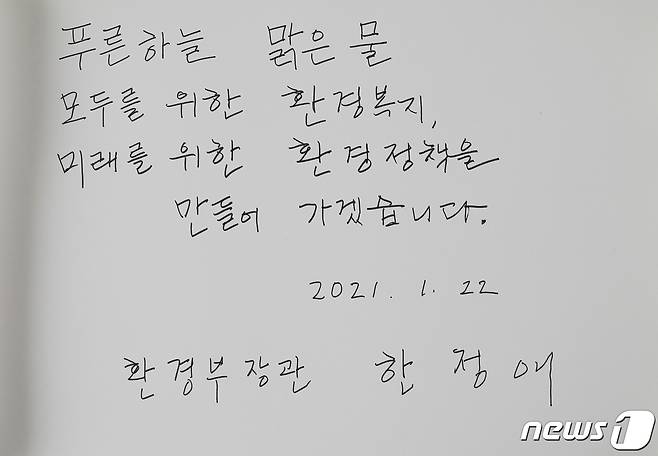 푸른하늘 맑은 물
모두를 위한 환경복지,
미래를 위한 환경정책을
만들어 가겠습니다.
2021. 1. 22
환경부장관 한정애
news1